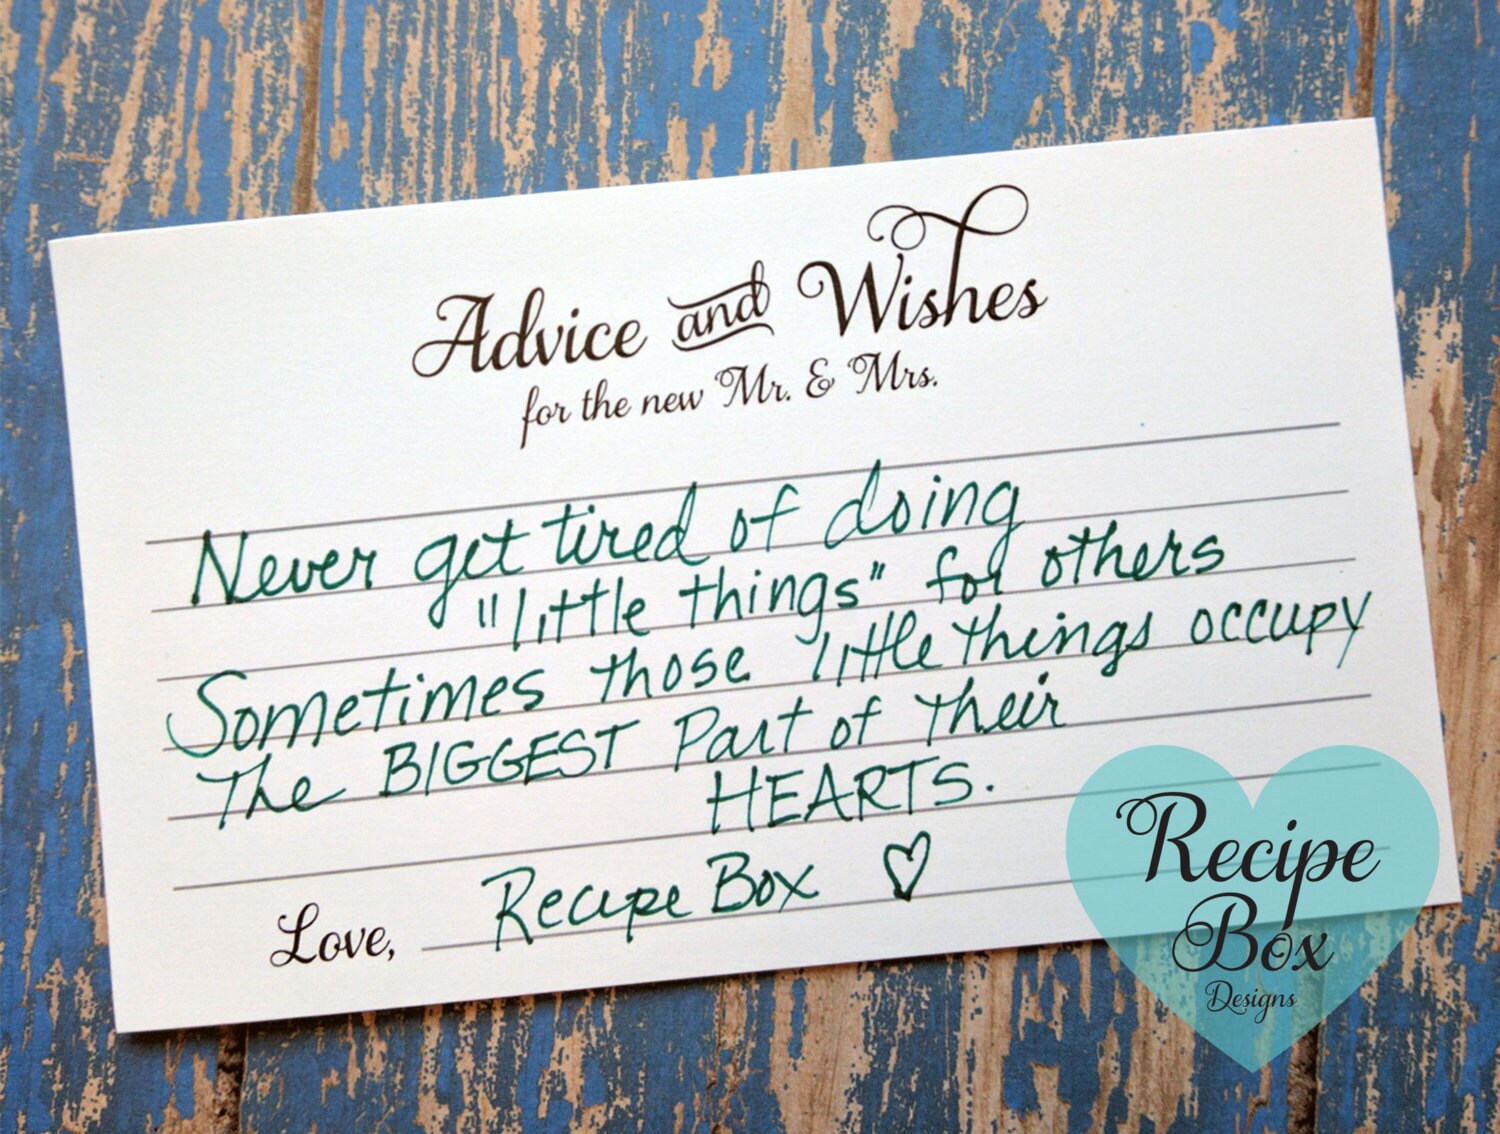 Advice and Wishes
for the new Mr. & Mrs.
Never get tired of doing
"little things" for others
Sometimes those little things occupy
The BIGGEST Part of their
HEARTS.
Love, Recipe Box ♡
Recipe
Box
Designs